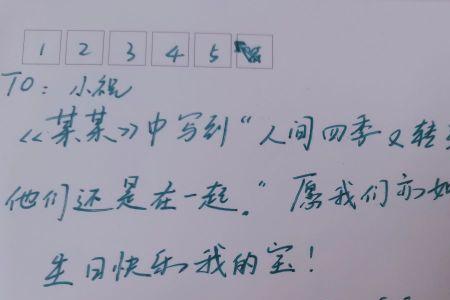 1 2 3 4 5
TO: 小祝
《某某》中写到“人间四季又转
他们还是在一起。”愿我们亦如
生日快乐我的宝！